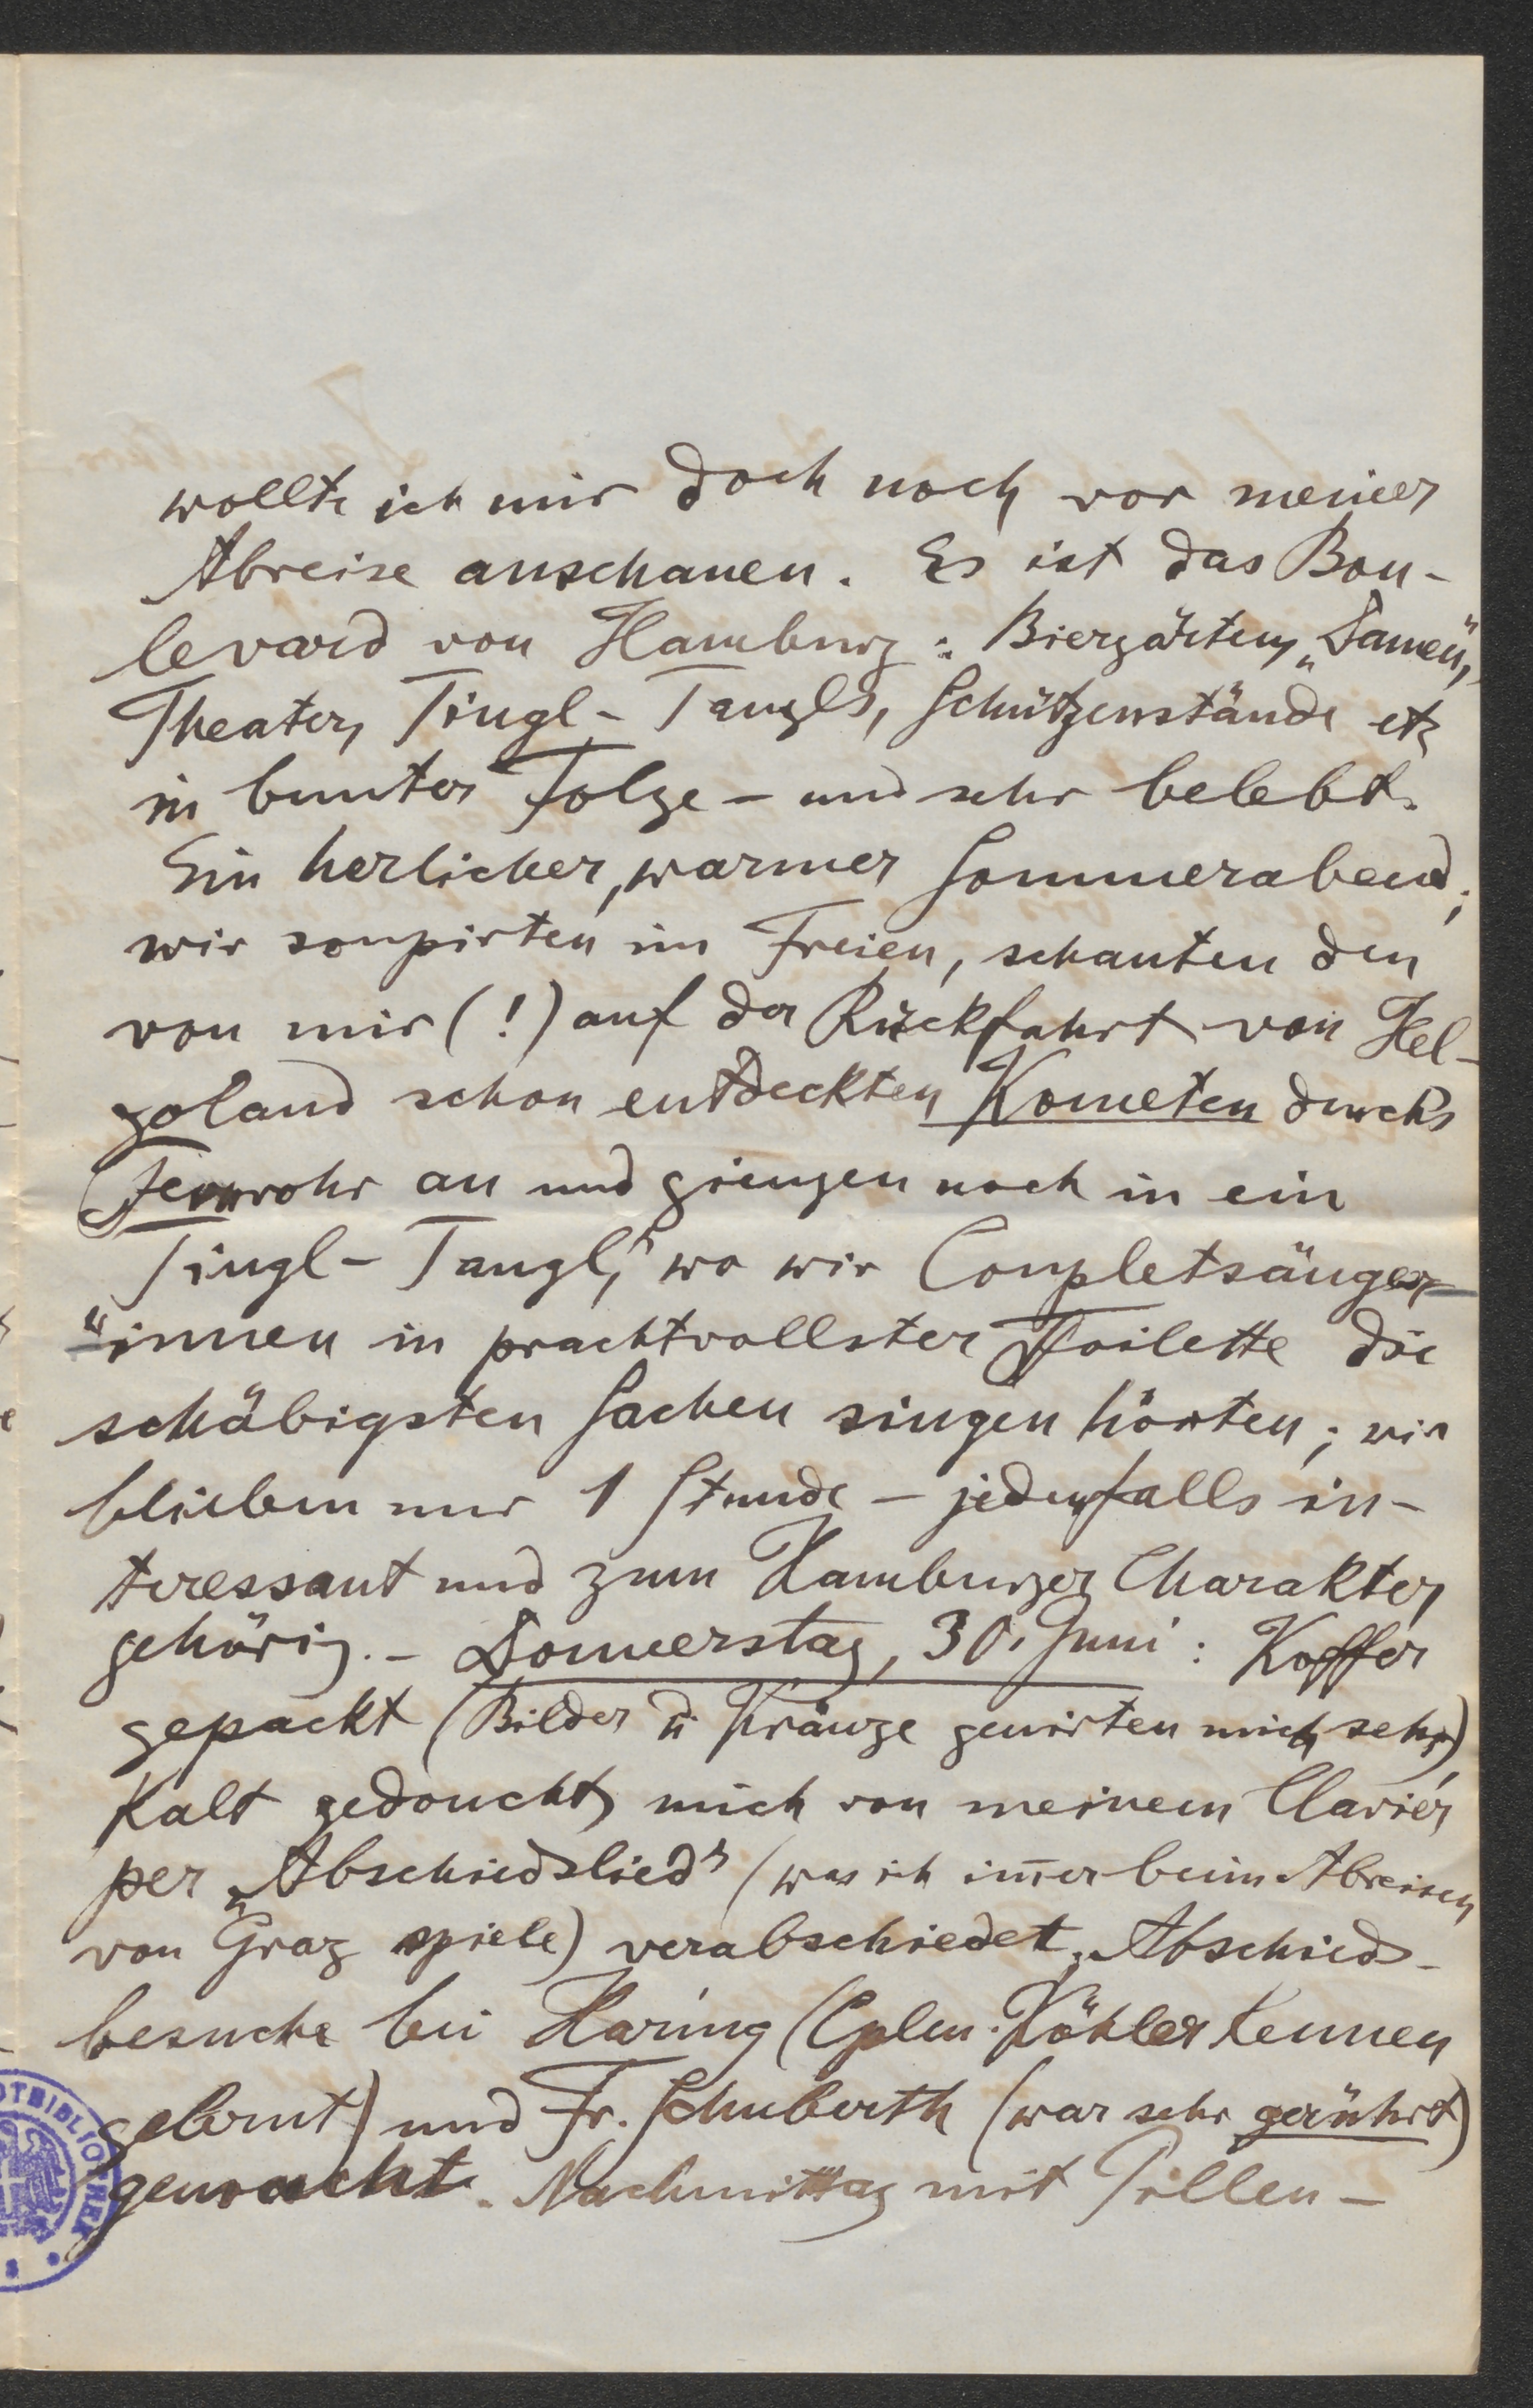 wollte ich mir doch noch vor meiner
Abreise anschauen. Es ist das Bou-
levard von Hamburg: Biergärten, „Damen",
Theater, Tingl-Tangls, Schützenstände etz
in bunter Folge – und sehr belebt.
Ein herlicher, warmer Sommerabend;
wir soupirten im Freien, schauten den
von mir (!) auf der Rückfahrt von Hel-
goland schon entdeckten Kometen durch's
Fernrohr an und giengen noch in ein
Tingl-Tangl, wo wir Coupletsänger-
innen in prachtvollster Toilette die
schäbigsten Sachen singen hörten; wir
blieben nur 1 Stunde – jedenfalls in-
teressant und zum Hamburger Charakter
gehörig. – Donnerstag, 30. Juni: Koffer
gepackt (Bilder u Kränze genirten mich sehr)
kalt gedoucht, mich von meinem Clavier
per „Abschiedslied" (was ich im̄er beim Abreisen
von Graz spiele) verabschiedet, Abschied-
besuche bei Haring (Cplm. Köhler kennen
gelernt) und Fr. Schuberth (war sehr gerührt)
gemacht. Nachmittag mit Pillen-
OTBIBLIOTHEK